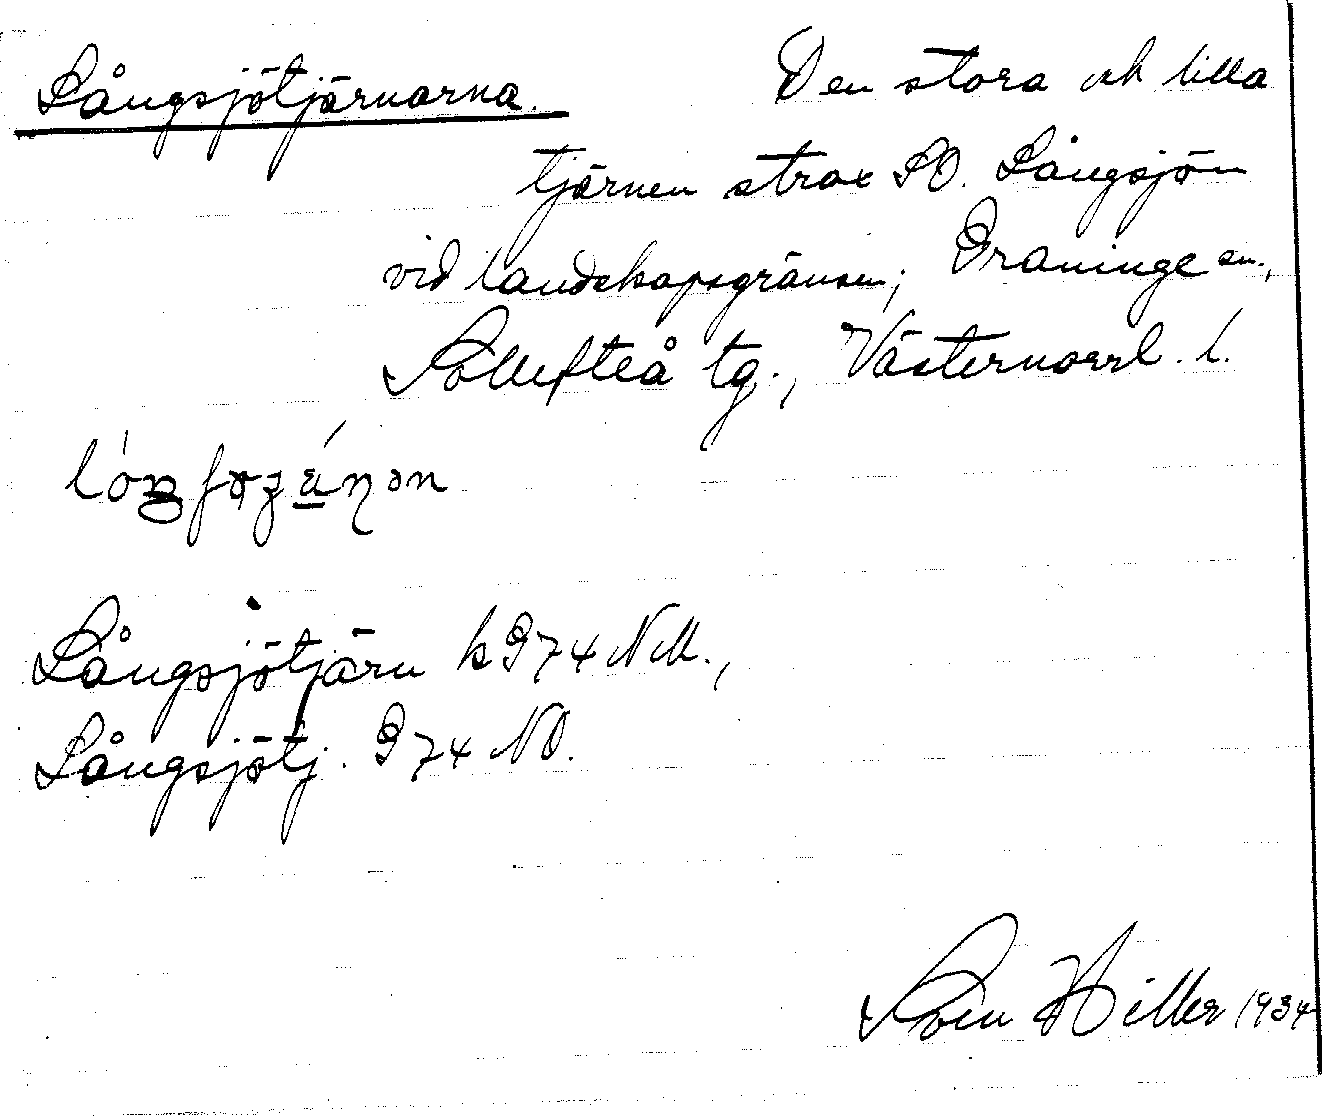 Långsjötjärnarna.
Den stora och lilla
tjärnen strax SO. Långsjön
vid landskapsgränsen; Graninge sn.,
Sollefteå tg., Västernorrl. l.
Långsjötjärn k G74 NV.,
Långsjötj. G74 NO.
Sven Hiller 1934